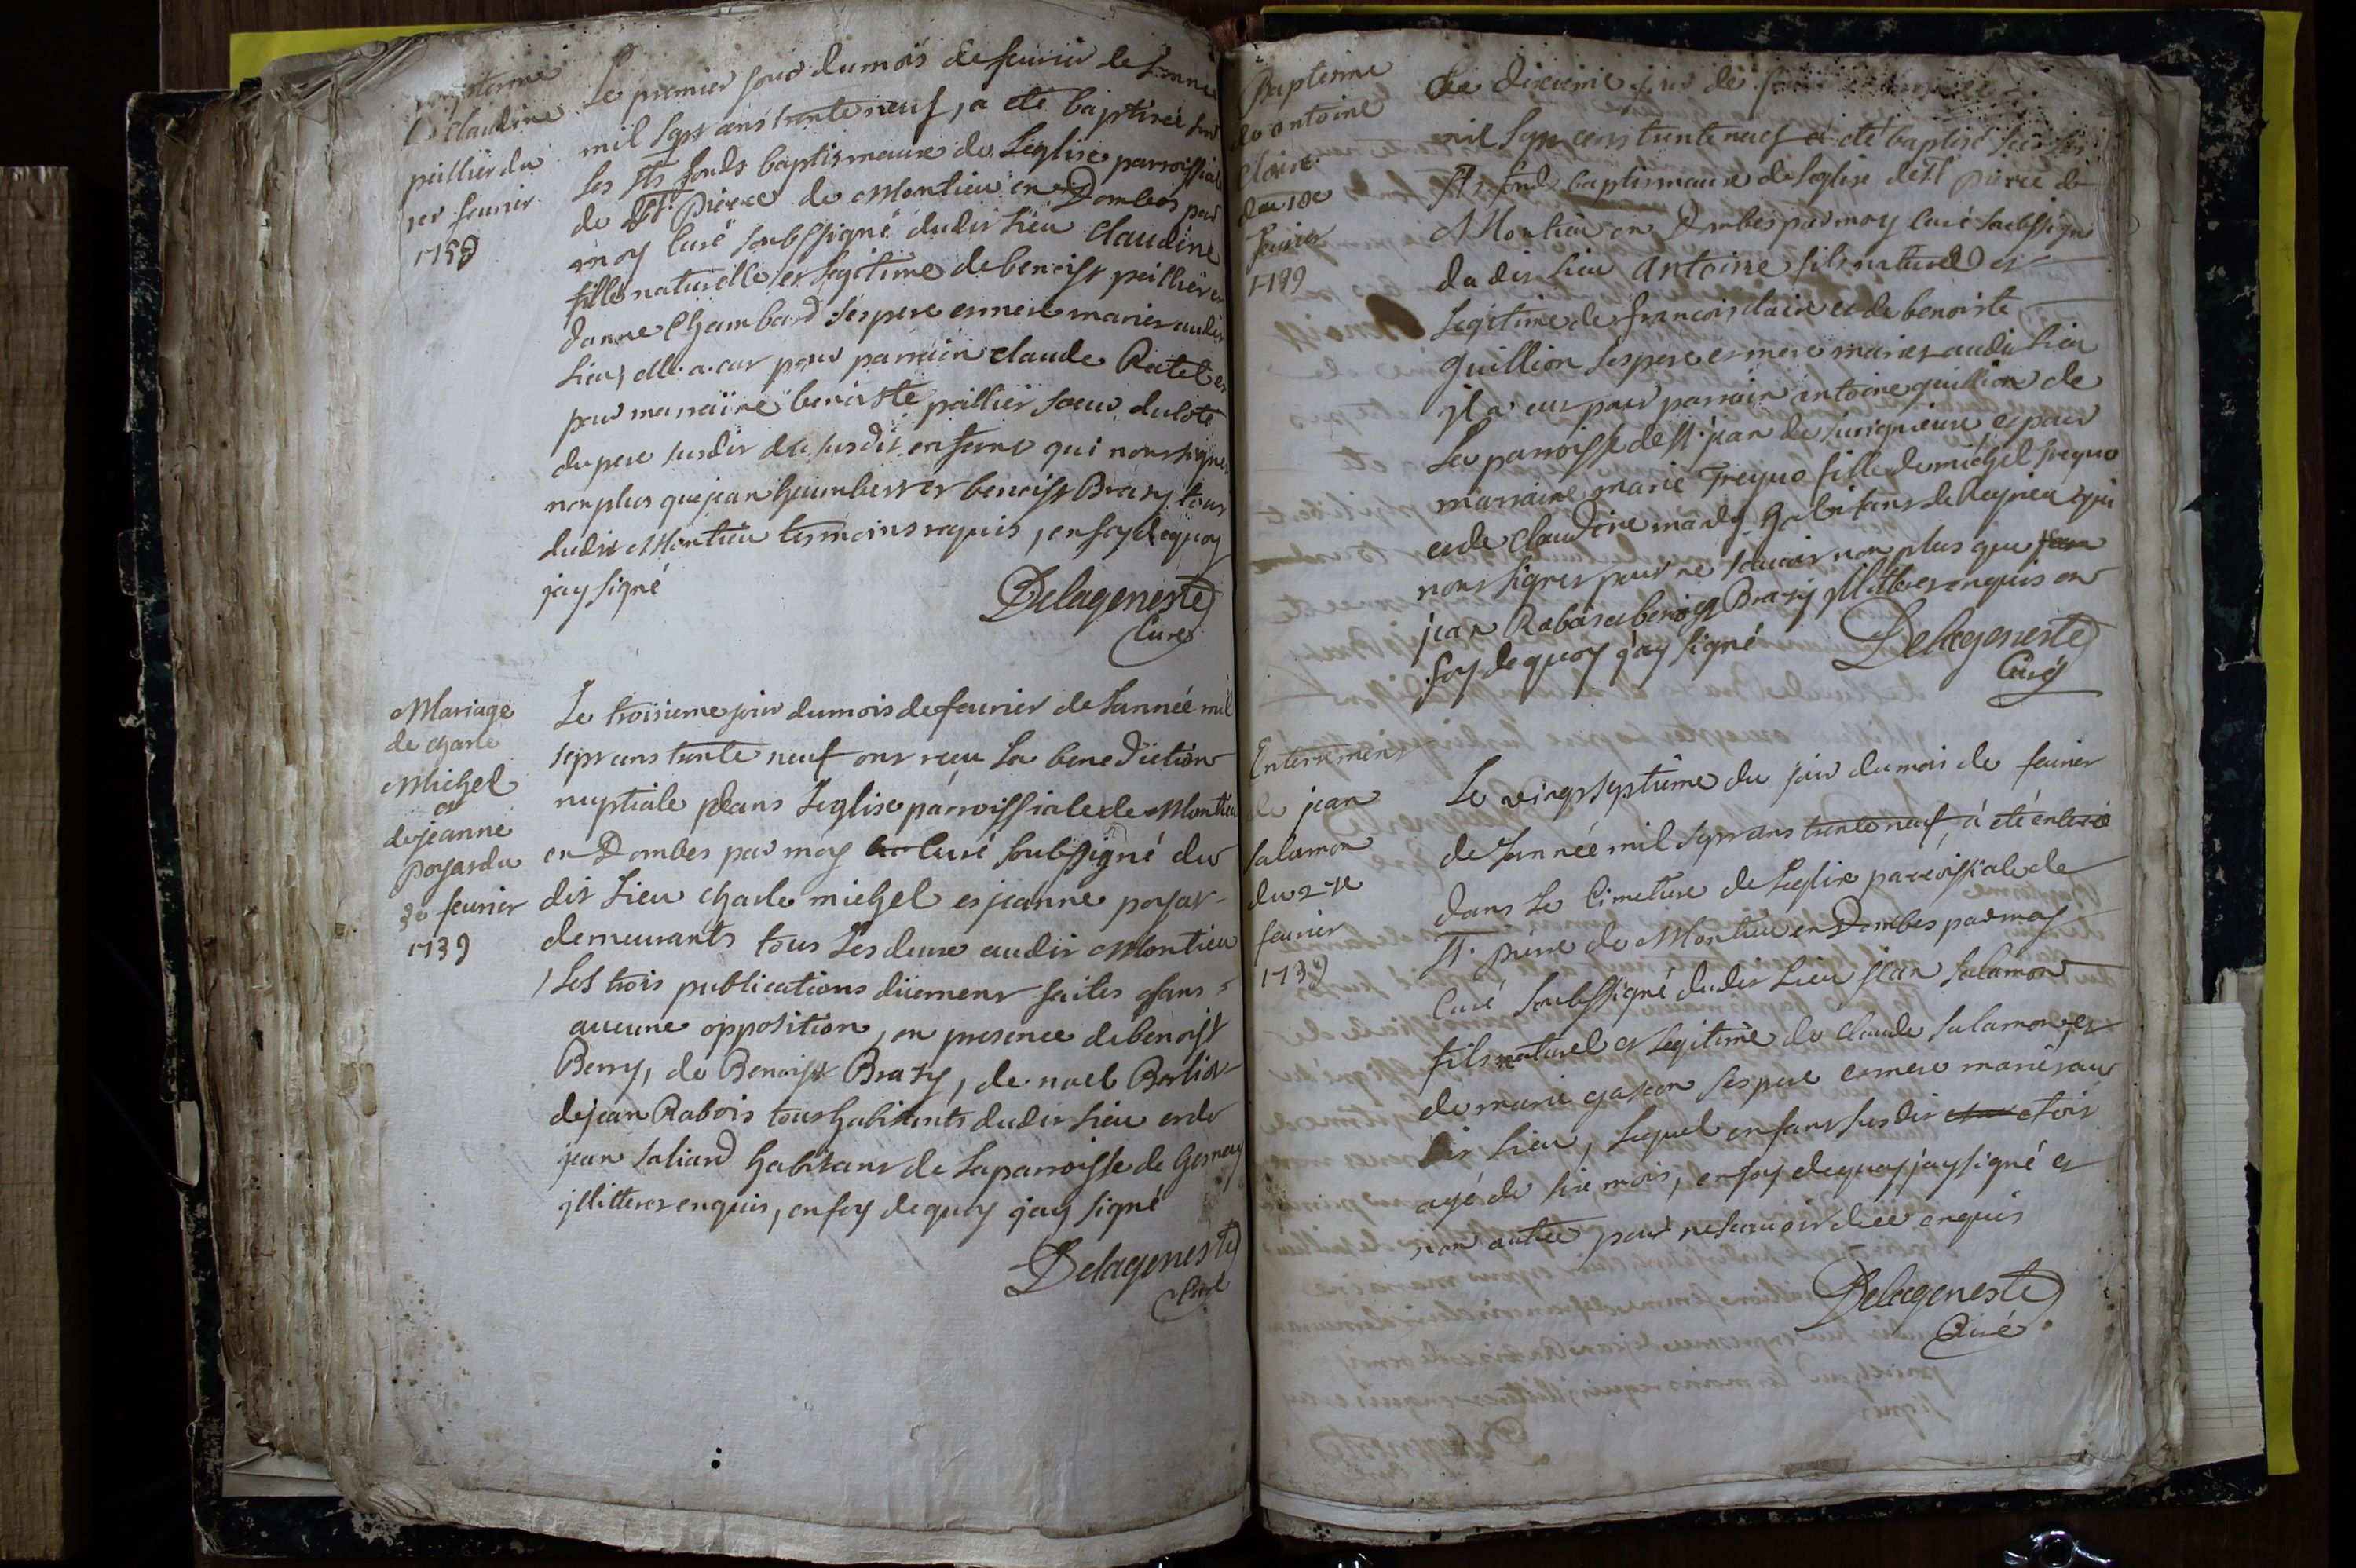 Bapteme
de Claudine
peillier du
1er feurier
1739
Le premier jour du mois de feurier de Lannee
mil Sept cens trente neuf, a été baptisée sur
Les Sts fonds baptismaux de Leglise parroissiale
de St. Pierre de Montieu en Dombes par
moy Curé soubssigné dudit Lieu Claudine
fille naturelle et Legitime de benoist peillier et
danne Chambard ses pere et mere mariés audit
Lieu, elle a eut pour parrain claude Ratel et
pour marraine benoiste peillier soeur du coté
du pere susdit du susdit enfant qui nont signé
non plus que jean humbert et benoist Brazy tous
dudit Montieu temoins requis, en foy de quoy
jay signé
Delageneste
Curé
Mariage
de charle
Michel
et
de jeanne
poyar du
3e feurier
1739
Le troisieme jour du mois de feurier de Lannée mil
sept cens trente neuf ont recu La benediction
nuptiale dans Leglise parroissiale de Montieu
en Dombes par moy Curé soubssigné du
dit Lieu charle michel et jeanne poyar
demeurants tous Les deux audit Montieu
Les trois publications düement faites sans
aucune opposition, en presence de benoist
Berry, de Benoist Brazy, de noel Berliot
de jean Rabois tous habitants dudit Lieu et de
jean Saliard habitant de La parroisse de
jllitteres enquis, en foy de quoy jay signé
Delageneste
Curé
Bapteme
de antoine
Clair
du 10e
feurier
1739
Le dixieme jour de
mil Sept cens trente neuf a été baptisé sur les
Sts fonds baptismaux de Leglise de St pierre de
Montieu en Dombes par moy Curé soubssigné
du dit Lieu antoine fils naturel et
Legitime de francois clair et de benoiste
Guillion ses pere et mere mariés audit Lieu
jl a eut pour parrain antoine guillion de
La parroisse de St. jean de turignieux et pour
marraine marie Trequo fille de michel trequo
et de Claudine habitans de Reyrieu qui
nont signés pour ne scauoir non plus que
jean Rabois et benoist Brazy jllitteres enquis en
foy de quoy jay signé
Delageneste
Curé
Enterrement
de jean
Salamon
du 27e
feurier
1739
Le vingt septième du jour du mois de feurier
de Lannée mil Sept cens trente neuf, a été enterré
dans Le Cimetiere de Leglise parroissiale de
St. pierre de Montieu en Dombes par moy
Curé soubssigné dudit Lieu jean Salamon
fils naturel et Legitime de Claude Salamon et
de marie gascon ses pere et mere mariés au
dit Lieu, Lequel enfant susdit etoit
agé de six mois, en foy de quoy jay signé et
non autre pour ne scauoir de ce enquis
Delageneste
Curé